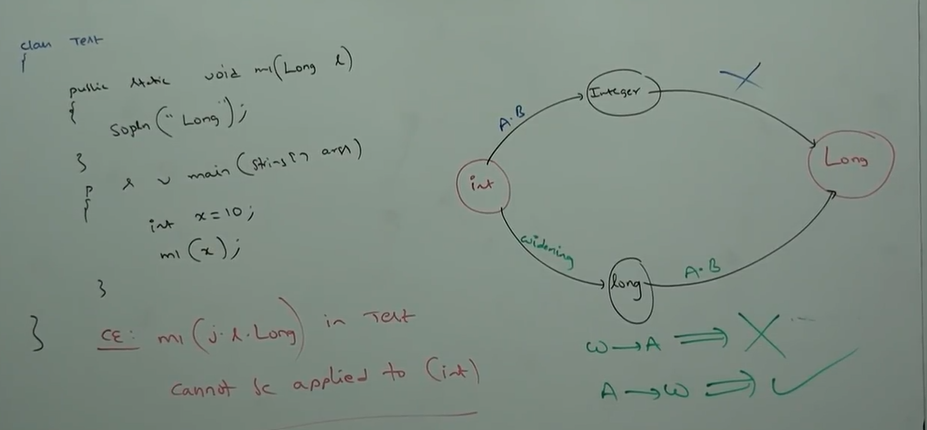 class Test
{
public static void m1(Long l)
{
Sopln("Long");
}
p s v main(String[] args)
{
int x=10;
m1(x);
}
}
CE: m1(j.l.Long) in Test
cannot be applied to (int)
A.B
Integer
X
int
Long
widening
long
A.B
W→A ⟹ X ...
A→W ⟹ ✓